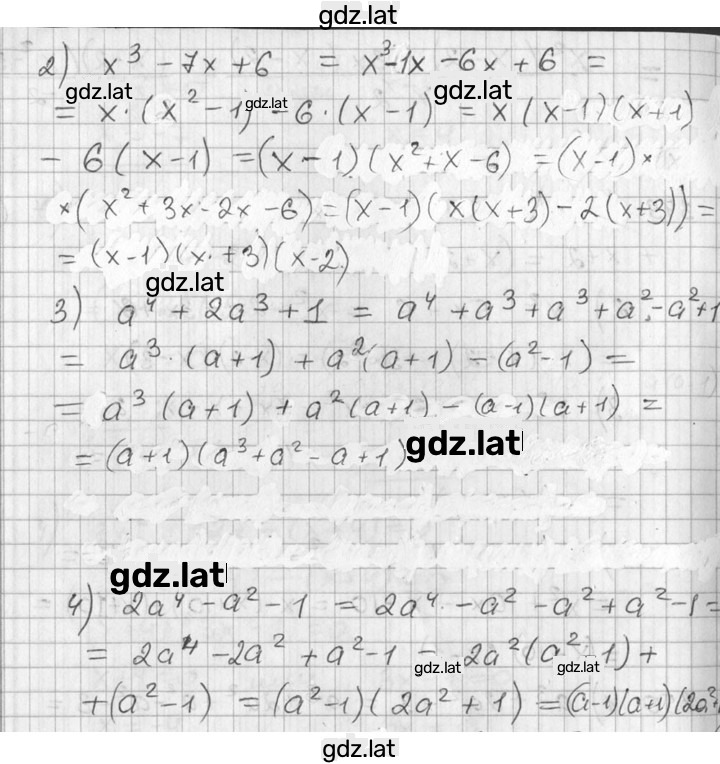 gdz.lat
2) x³ - 7x + 6 = x³ - 1x - 6x + 6 =
gdz.lat gdz.lat gdz.lat
= x · (x² - 1) - 6 · (x - 1) = x (x - 1)(x + 1)
- 6 (x - 1) = (x - 1) (x² + x - 6) = (x - 1) ×
× (x² + 3x - 2x - 6) = (x - 1) (x (x + 3) - 2 (x + 3)) =
= (x - 1) (x + 3) (x - 2)
gdz.lat
3) a⁴ + 2a³ + 1 = a⁴ + a³ + a³ + a² - a² + 1
= a³ · (a + 1) + a² (a + 1) - (a² - 1) =
= a³ (a + 1) + a² (a + 1) - (a - 1) (a + 1) =
= (a + 1) (a³ + a² - a + 1)
gdz.lat
gdz.lat
4) 2a⁴ - a² - 1 = 2a⁴ - a² - a² + a² - 1 =
= 2a⁴ - 2a² + a² - 1 = 2a² (a² - 1) +
gdz.lat gdz.lat
+ (a² - 1) = (a² - 1) (2a² + 1) = (a - 1) (a + 1) (2a² +
gdz.lat